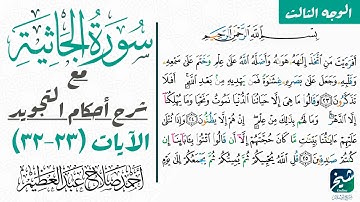 الوجه الثالث
سورة الجاثية
مع
شرح أحكام التجويد
الآيات (٢٣-٣٢)
أحمد صلاح عبد العظيم
بسم الله الرحمن الرحيم
أفرءيت من اتخذ إلهه هوىه وأضله الله على علم وختم على سمعه
وقلبه وجعل على بصره غشوة فمن يهديه من بعد الله أفلا
تذكرون ٢٣ وقالوا ما هي إلا حياتنا الدنيا نموت ونحيا وما يهلكنا
إلا الدهر وما لهم بذلك من علم إن هم إلا يظنون ٢٤ وإذا تتلى
عليهم ءايتنا بينت ما كان حجتهم إلا أن قالوا ائتوا بـابائنا إن
كنتم صدقين ٢٥ قل الله يحييكم ثم يميتكم ثم يجمعكم إلى يوم